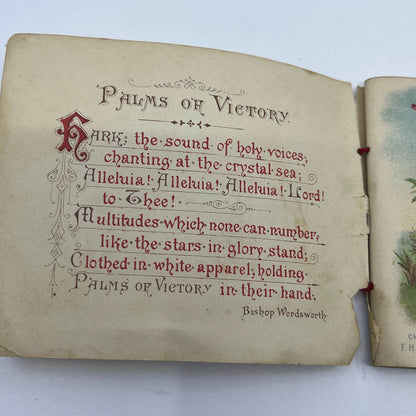 PALMS OF VICTORY.
HARK: the sound of holy voices;
chanting at the crystal sea;
Alleluia! Alleluia! Alleluia! Lord!
to Thee!
Multitudes which none can number,
like the stars in glory stand;
Clothed in white apparel; holding
PALMS OF VICTORY in their hand.
Bishop Wordsworth